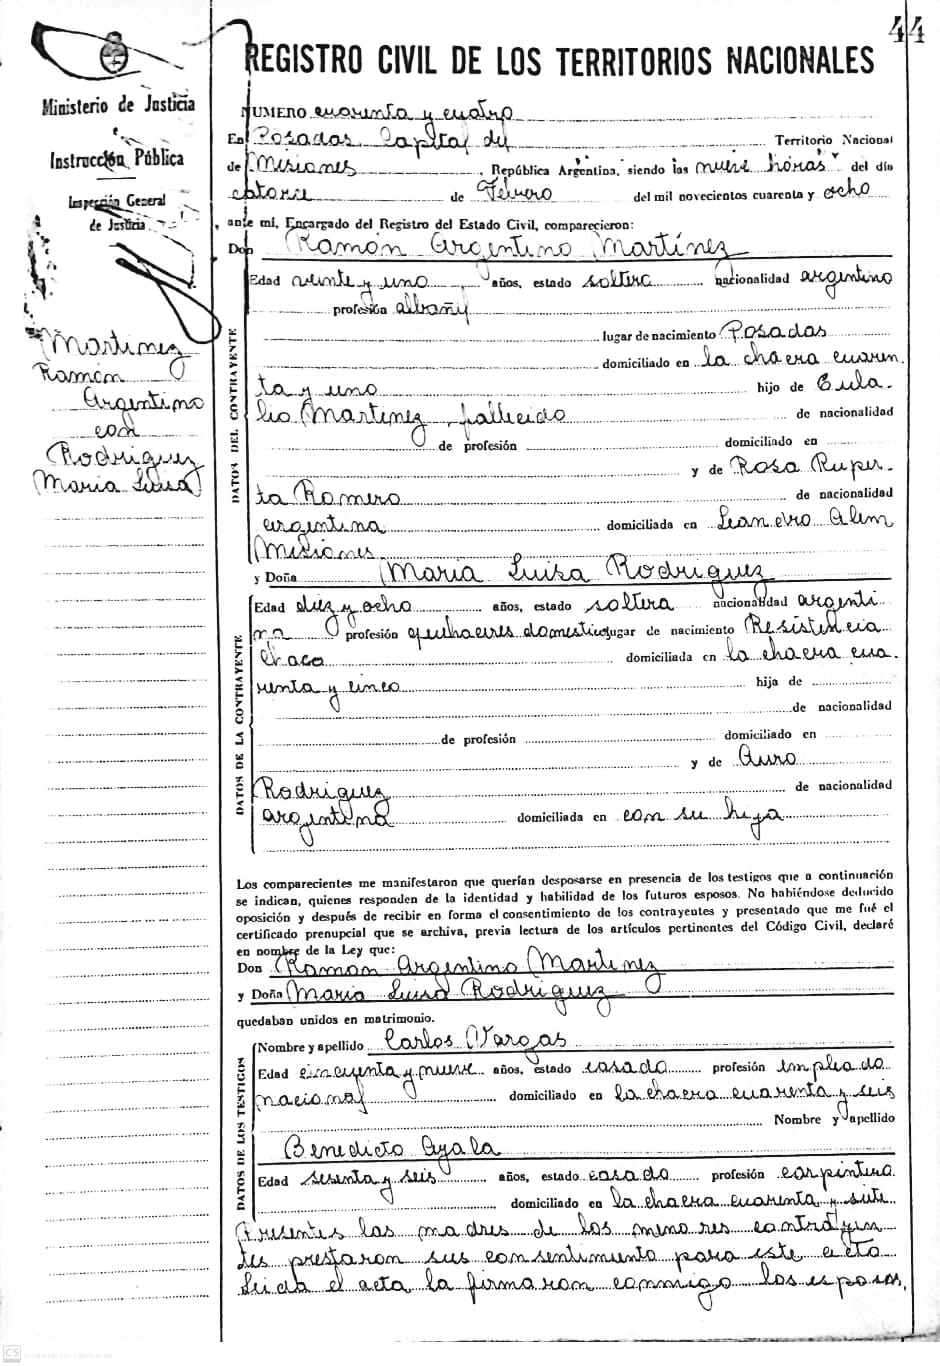 44
Ministerio de Justicia
e
Instrucción Pública
Inspección General
de Justicia
Martinez
Ramón
Argentino
con
Rodriguez
Maria Luisa
REGISTRO CIVIL DE LOS TERRITORIOS NACIONALES
NUMERO cuarenta y cuatro
En Posadas, Capital del Territorio Nacional
de Misiones, República Argentina, siendo las nueve horas del día
catorce de Febrero del mil novecientos cuarenta y ocho
, ante mi, Encargado del Registro del Estado Civil, comparecieron:
Don Ramón Argentino Martínez
DATOS DEL CONTRAYENTE
Edad veinte y uno años, estado soltero nacionalidad argentino
profesión albañil
lugar de nacimiento Posadas
domiciliado en la chacra cuaren
ta y uno hijo de Eula-
lio Martinez, fallecido de nacionalidad
de profesión domiciliado en
y de Rosa Ruper-
ta Romero de nacionalidad
argentina domiciliada en Leandro Alem
Misiones
y Doña Maria Luisa Rodriguez
DATOS DE LA CONTRAYENTE
Edad diez y ocho años, estado soltera nacionalidad argenti
na profesión quehaceres domesticos lugar de nacimiento Resistencia
Chaco domiciliada en la chacra cua-
renta y cinco hija de
de nacionalidad
de profesión domiciliado en
y de Aura
Rodriguez de nacionalidad
argentina domiciliada en con su hija
Los comparecientes me manifestaron que querían desposarse en presencia de los testigos que a continuación
se indican, quienes responden de la identidad y habilidad de los futuros esposos. No habiéndose deducido
oposición y después de recibir en forma el consentimiento de los contrayentes y presentado que me fué el
certificado prenupcial que se archiva, previa lectura de los artículos pertinentes del Código Civil, declaré
en nombre de la Ley que:
Don Ramon Argentino Martinez
y Doña Maria Luisa Rodriguez
quedaban unidos en matrimonio.
DATOS DE LOS TESTIGOS
Nombre y apellido Carlos Vargas
Edad cincuenta y nueve años, estado casado profesión empleado
nacional domiciliado en la chacra cuarenta y seis
Nombre y apellido
Benedicto Ayala
Edad sesenta y seis años, estado casado profesión carpintero
domiciliado en la chacra cuarenta y siete
Presentes las madres de los menores contrayen
tes prestaron sus consentimiento para este acto
Leida el acta la firmaron conmigo los esposos,
CS